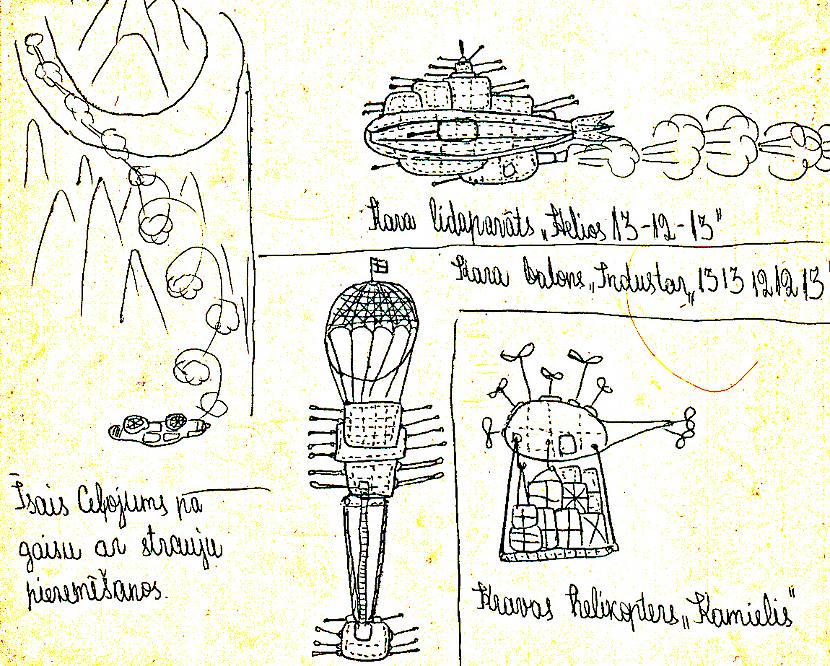 Kara lidaparāts „Helios 13-12-13"
Kara balons „Industar„ 1313 1212 13"
Īsais Ceļojums pa
gaisu ar strauju
piezemēšanos.
Kravas helikopters „Kamielis"